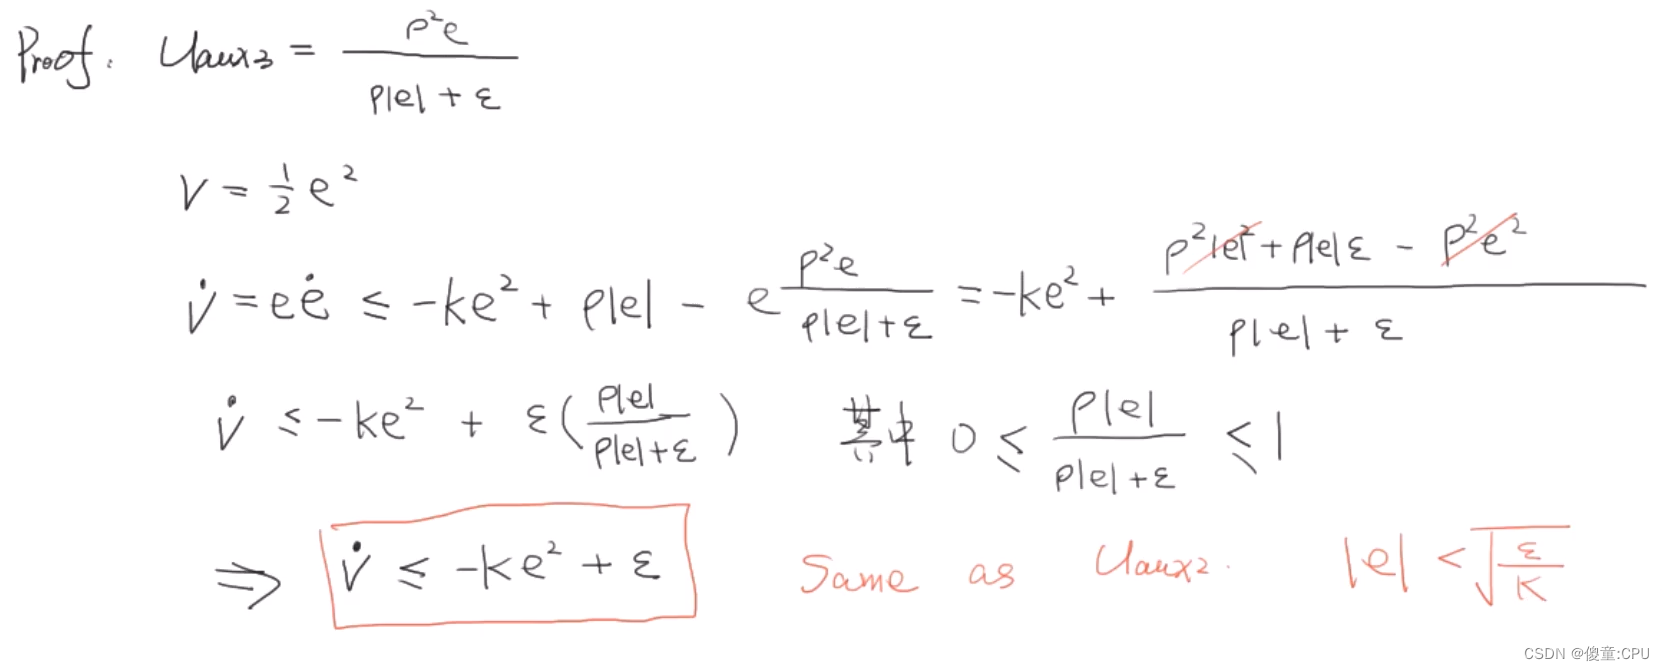 Proof. Uaux3 = ρ²e / (ρ|e| + ε)
V = 1/2 e²
V̇ = eė ≤ -ke² + ρ|e| - e ρ²e / (ρ|e| + ε) = -ke² + (ρ²|e|² + ρ|e|ε - ρ²e²) / (ρ|e| + ε)
V̇ ≤ -ke² + ε(ρ|e| / (ρ|e| + ε)) 其中 0 ≤ ρ|e| / (ρ|e| + ε) ≤ 1
⇒ V̇ ≤ -ke² + ε Same as Uaux2. |e| < √(ε/K)
CSDN @傻童:CPU